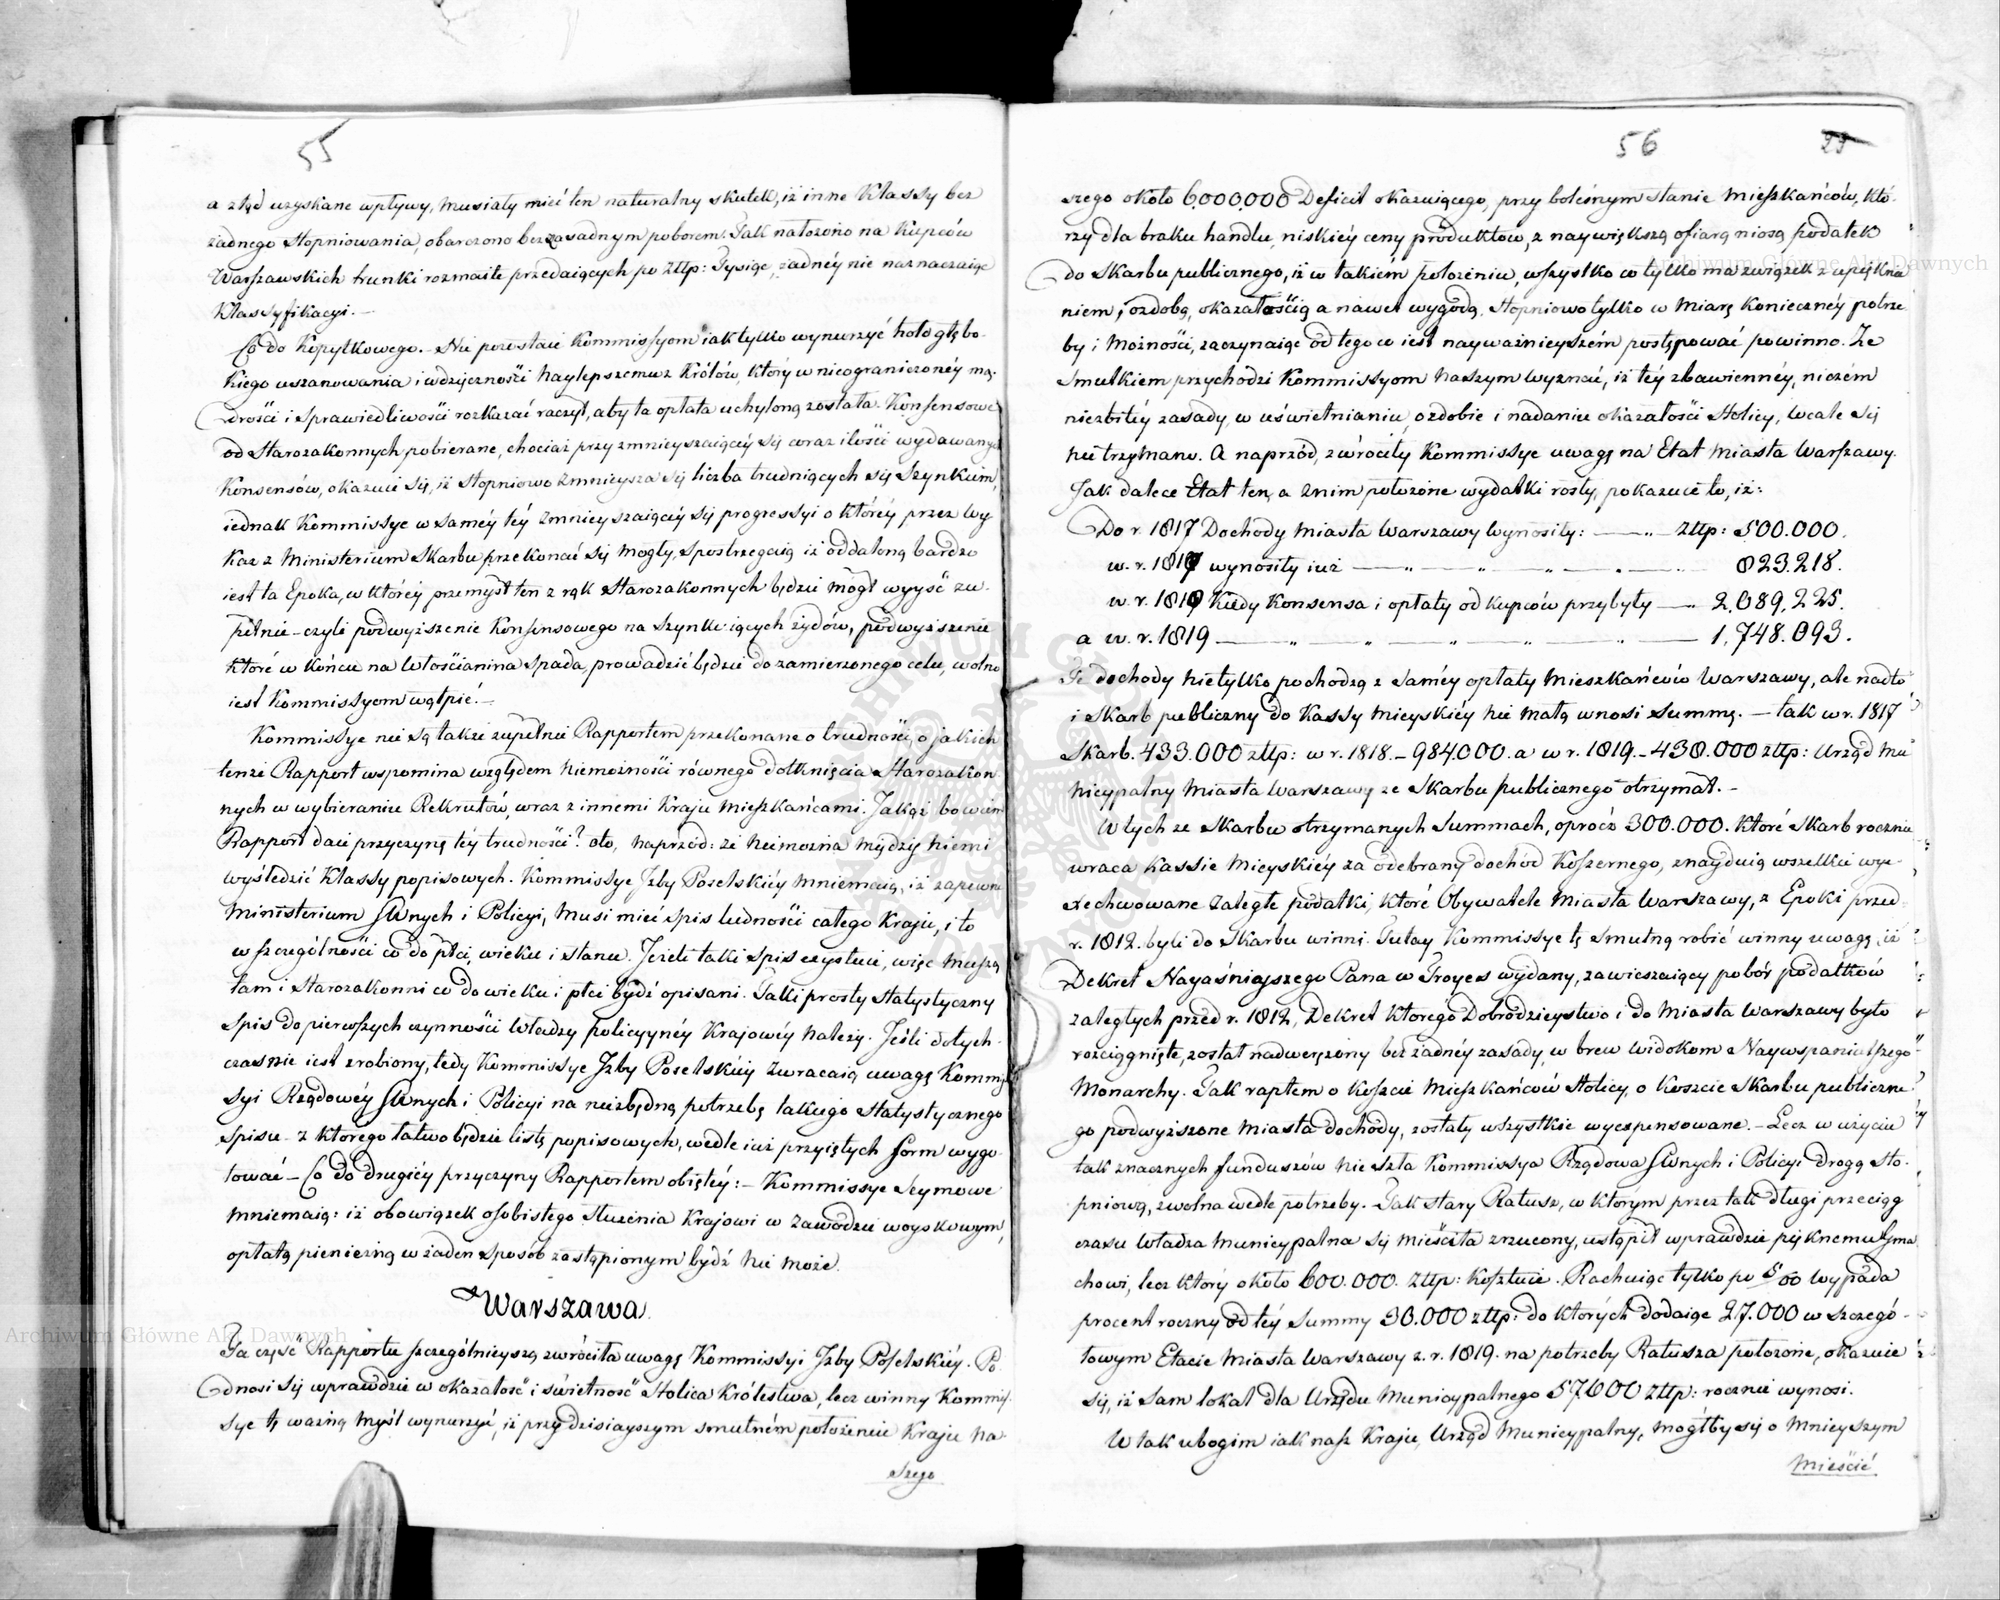 55
a ztąd uzyskane wpływy, musiały mieć ten naturalny skutek, iż inne Klassy bez
żadnego stopniowania, obarczono bezzasadnym poborem. Tak nałożono na Kupców
Warszawskich trunki rozmaite przedaiących po złtp: Tysiąc, żadnéy nie naznaczaiąc
Klassyfikacyi. —
Co do Kopytkowego. — Nie pozostaie Kommissyom iak tylko wynurzyć hołd głębo-
kiego uszanowania i wdzięczności naylepszemu z Królów, który w nieograniczonéy mą-
drości i sprawiedliwości rozkazać raczył, aby ta opłata uchyloną została. Konsensowe
od Starozakonnych pobierane, chociaż przy zmnieyszaiącéy się coraz ilości wydawanych
Konsensów, okazuie się, iż stopniowo zmnieysza się liczba trudniących się Szynkiem,
iednak Kommissye w saméy téy zmnieyszaiącéy się progressyi o któréy przez wy
kaz z Ministerium Skarbu przekonać się mogły, spostrzegaią iż oddaloną bardzo
iest ta Epoka, w któréy przemysł ten z rąk Starozakonnych będzie mógł wyyść zu-
pełnie — czyli podwyższenie Konsensowego na szynkuiących żydów, podwyższenie
które w końcu na włościanina spada, prowadzić będzie do zamierzonego celu, wolno
iest Kommissyom wątpić. —
Kommissye nie są także zupełnie Rapportem przekonane o trudności, o jakich
tenże Rapport wspomina względem niemożności równego dotknięcia Starozakon
nych w wybieraniu Rekrutów, wraz z innemi Kraju mieszkańcami. Jakąż bowiem
Rapport daie przyczynę téy trudności? oto, naprzód: że niemożna między niemi
wyśledzić Klassy popisowych. Kommissye Jzby Poselskiéy mniemaią, iż zapewne
Ministerium Swnych i Policyi, musi mieć spis ludności całego Kraju, i to
w szczególności co do płci, wieku i stanu. Jeżeli taki spis exystuie, więc muszą
tam i Starozakonni co do wieku i płci bydź opisani. Taki prosty statystyczny
spis do pierwszych czynności Władzy policyynéy Krajowéy należy. Jeśli dotych-
czas nie iest zrobiony, tedy Kommissye Jzby Poselskiéy zwracaią uwagę Kommis
syi Rządowéy Swnych i Policyi na niezbędną potrzebę takiego statystycznego
spisu — z którego łatwo będzie listę popisowych, wedle iuż przyiętych form wygo-
tować — Co do drugiéy przyczyny Rapportem obiętéy: — Kommissye Seymowe
mniemaią: iż obowiązek osobistego służenia Krajowi w zawodzie woyskowym,
opłatą pieniężną w żaden sposób zastąpionym bydź nie może.
Warszawa.
Ta część Rapportu szczególnieyszą zwróciła uwagę Kommissyi Jzby Poselskiéy. Po-
dnosi się wprawdzie w okazałość i świetność Stolica Królestwa, lecz winny Kommis-
sye tę ważną myśl wynurzyć, iż przy dzisiayszym smutném położeniu Kraju na-
szego
56
szego około 6,000,000 Deficit okazuiącego, przy bolesnym stanie mieszkańców, któ-
rzy dla braku handlu, niskiéy ceny produktów, z naywiększą ofiarą niosą podatek
do Skarbu publicznego, iż w takiém położeniu, wszystko co tylko ma związek z upiękna
niem, ozdobą, okazałością a nawet wygodą, stopniowo tylko w miarę konieczney potrze
by i możności, zaczynaiąc od tego co iest nayważnieyszém postępować powinno. Ze
smutkiem przychodzi Kommissyom naszym wyznać, iż téy zbawiennéy, niczém
niezbitéy zasady, w uświetnianiu, ozdobie i nadaniu okazałości Stolicy, wcale się
nie trzymano. A naprzód, zwróciły Kommissye uwagę na Etat miasta Warszawy.
Jak dalece Etat ten, a z nim położone wydatki rosły, pokazuie to, iż:
Do r. 1817 Dochody miasta Warszawy wynosiły: — „ — złtp: 500.000.
w. r. 1817 wynosiły iuż — „ — „ — „ — „ — 823.218.
w. r. 1818 Kiedy Konsensa i opłaty od Kupców przybyły — „ 2,089,225.
a w. r. 1819 — „ — „ — „ — „ — 1,748.093.
Te dochody nietylko pochodzą z saméy opłaty mieszkańców Warszawy, ale nadto
i Skarb publiczny do Kassy mieyskiéy nie małą wnosi summę. — tak w r. 1817
Skarb. 433.000 złtp: w r. 1818. — 984000. a w r. 1819. — 438.000 złtp: Urząd Mu
nicypalny miasta Warszawy ze Skarbu publicznego otrzymał. —
W tych ze Skarbu otrzymanych summach, oprócz 300.000. które Skarb rocznie
wraca Kassie mieyskiéy za odebrany dochód Koszernego, znayduią wszelkie wye-
xekwowane zaległe podatki, które Obywatele miasta Warszawy, z Epoki przed
r. 1812. byli do Skarbu winni. Tutay Kommissye tę smutną robić winny uwagę, iż
Dekret Nayaśniejszego Pana w Troyes wydany, zawieszaiący pobór podatków
zaległych przed r. 1812, Dekret którego Dobrodzieystwo i do miasta Warszawy było
rozciągnięte, został nadwerężony bez żadnéy zasady, w brew widokom Naywspanialszego
Monarchy. Tak raptem o koszcie mieszkańców Stolicy, o koszcie Skarbu publiczne
go podwyższone miasta dochody, zostały wszystkie wyexpensowane. — Lecz w użyciu
tak znacznych funduszów nie szła Kommissya Rządowa Swnych i Policyi drogą sto-
pniową, zwolna wedle potrzeby. Tak stary Ratusz, w którym przez tak długi przeciąg
czasu Władza Municypalna się mieściła zrzucony, ustąpił wprawdzie pięknemu gma
chowi, lecz który około 600.000. złtp: kosztuie. Rachuiąc tylko po 5/00 wypada
procent roczny od téy summy 30.000 złtp: do których dodaiąc 27.000 w szczegó-
łowym Etacie miasta Warszawy z. r. 1819. na potrzeby Ratusza położone, okazuie
się, iż sam lokal dla Urzędu Municypalnego 57000 złtp: rocznie wynosi.
W tak ubogim iak nasz Kraju, Urząd Municypalny, mógłby się o mnieyszym
mieścić
Archiwum Główne Akt Dawnych
Archiwum Główne Akt Dawnych